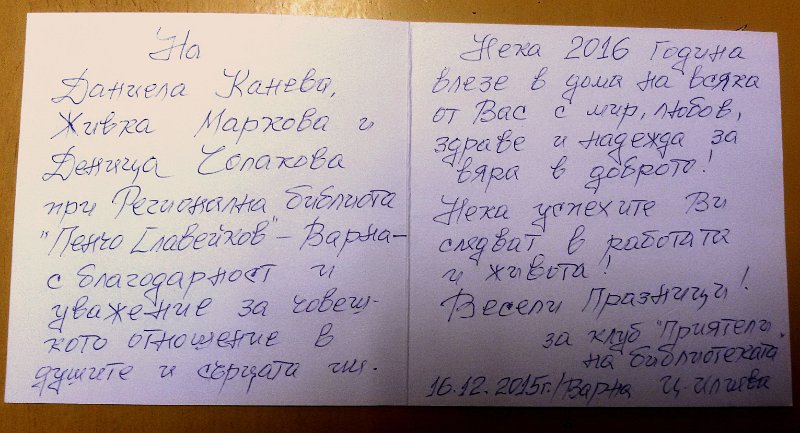 На
Даниела Канева,
Живка Маркова и
Деница Чолакова
при Регионална библиота
"Пенчо Славейков" – Варна –
с благодарност и
уважение за човеш-
кото отношение в
душите и сърцата им.
Нека 2016 Година
влезе в дома на всяка
от Вас с мир, любов,
здраве и надежда за
вяра в доброто!
Нека успехите Ви
следват в работата
и живота!
Весели Празници!
за клуб "Приятели
на библиотеката
16.12.2015г./Варна Ц. Илиева